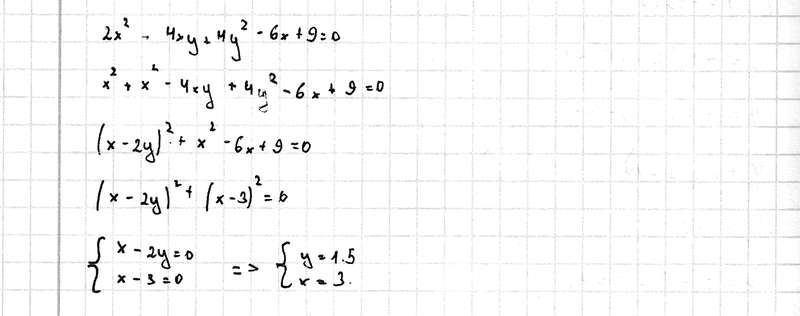 2x² - 4xy + 4y² - 6x + 9 = 0
x² + x² - 4xy + 4y² - 6x + 9 = 0
(x - 2y)² + x² - 6x + 9 = 0
(x - 2y)² + (x - 3)² = 0
{ x - 2y = 0 => { y = 1.5
{ x - 3 = 0 { x = 3.